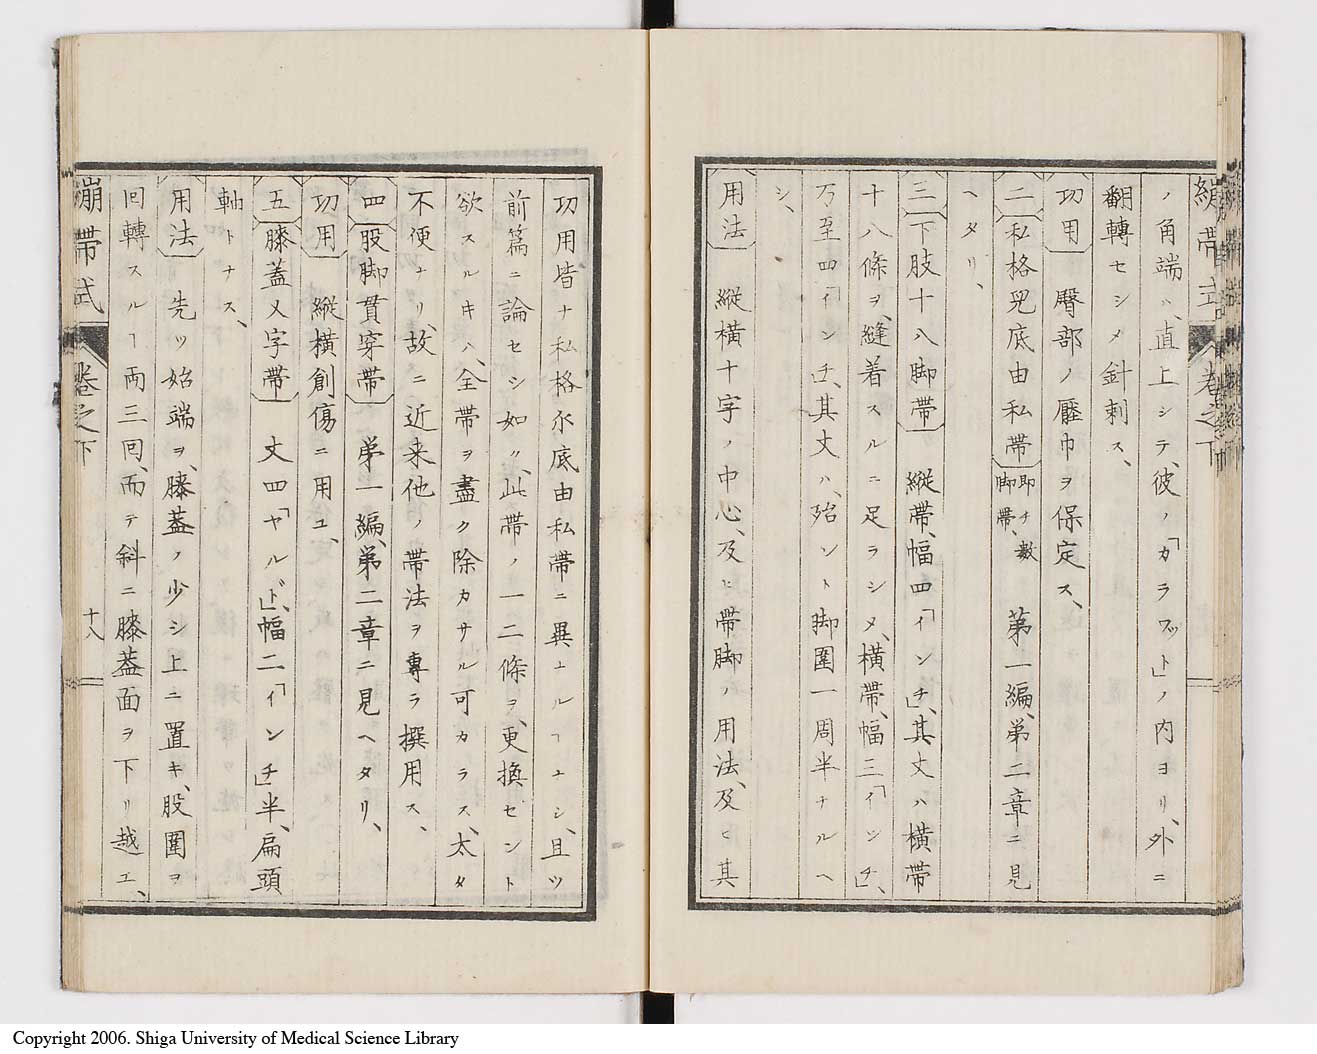 繃帶式 卷之下
ノ角端ハ、直上シテ、彼ノ「カラフット」ノ内ヨリ、外ニ
翻轉セシメ針刺ス、
功用 臀部ノ壓巾ヲ保定ス、
二 私格兒底由私帶 即チ數脚帶、 第一編、第二章ニ見
ヘタリ、
三 下肢十八脚帶 縱帶、幅四「インチ」、其丈ハ横帶
十八條ヲ、縫着スルニ足ラシメ、横帶、幅三「インチ」、
乃至四「インチ」、其丈ハ、殆ント脚圍一周半ナルヘ
シ、
用法 縱横十字ノ中心、及ヒ帶脚ノ用法、及ヒ其
功用、皆ナ私格尓底由私帶ニ異ナルヿナシ、且ツ
前篇ニ論セシ如ク、此帶ノ一二條ヲ、更換セント
欲スルキハ、全帶ヲ盡ク除カサル可カラス、太タ
不便ナリ、故ニ近来他ノ帶法ヲ專ラ撰用ス、
四 股脚貫穿帶 第一編、第二章ニ見ヘタリ、
功用 縱横創傷ニ用ユ、
五 膝蓋乂字帶 丈四「ヤルド」、幅二「インチ」半、扁頭
軸トナス、
用法 先ツ始端ヲ、膝蓋ノ少シ上ニ置キ、股圍ヲ
回轉スルヿ両三回、而テ斜ニ膝蓋面ヲ下リ越エ、
繃帶式 卷之下 十八
Copyright 2006. Shiga University of Medical Science Library